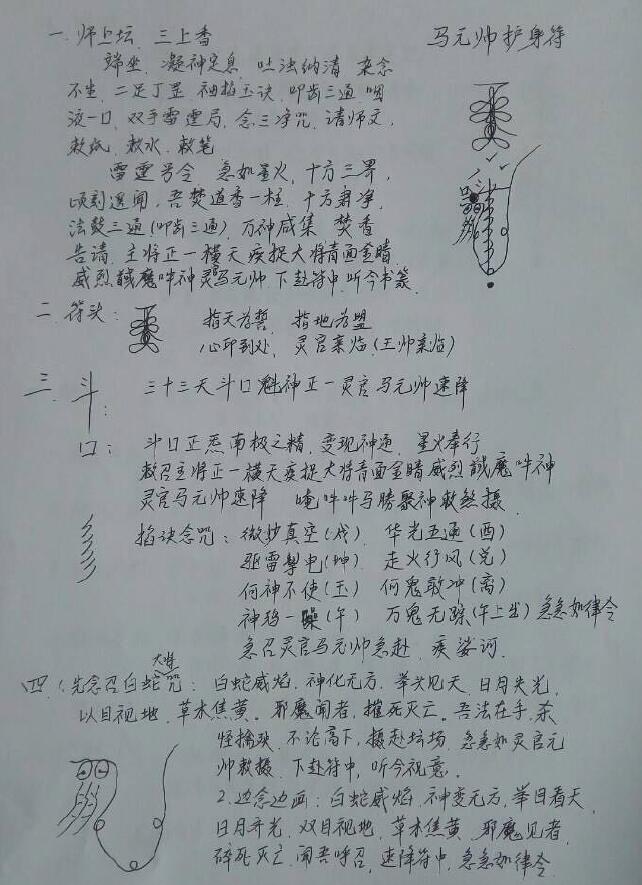 马元帅护身符
一.师上坛.三上香
端坐.凝神定息.吐浊纳清 杂念
不生.二足丁罡.袖掐玉诀.叩齿三通 咽
液一口.双手雷霆局.念三净咒.请师文,
敕纸.敕水.敕笔
雷霆号令 急如星火,十方三界,
顷刻遥闻,吾焚道香一柱,十方肃净,
法鼓三通(叩齿三通),万神咸集 焚香
告请.主将正一横天疾捉大将青面金睛
威烈馘魔吽神灵马元帅.下赴符中.听令书篆.
二 符头: 指天为誓.指地为盟
心印到处、灵官来临(王帅亲临)
三. 斗: 三十三天斗口魁神正一灵官马元帅速降
口: 斗口正炁南极之精,变现神通,星火奉行
敕召主将正一横天疾捉大将青面金睛威烈馘魔吽神
灵官马元帅速降 唵吽吽马胜聚神敕煞摄.
掐诀念咒: 微妙真空(戌).华光五通(酉)
驱雷掣电(坤).走火行风(兑)
何神不使(玉) 何鬼敢冲(离)
神鸦一噪(午) 万鬼无踪(午上出)急急如律令
急召灵官马元帅急赴.疾娑诃.
四.1.先念召白蛇大将咒: 白蛇威焰.神化无方.举头见天.日月失光,
以目视地.草木焦黄.邪魔闻者,摧死灭亡.吾法在手.杀
怪擒殃.不论高下.摄赴坛场.急急如灵官元
帅敕摄.下赴符中,听令视意.
2.边念边画: 白蛇威焰.神变无方,举目看天,
日月齐光.双目视地,草木焦黄.邪魔见者,
碎死灭亡.闻吾呼召.速降符中,急急如律令